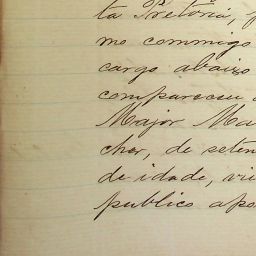 ta Pretoria,
mo commigo
cargo abaixo
compareceu
Major Ma
cher, de seten
de idade, viu
publico apo